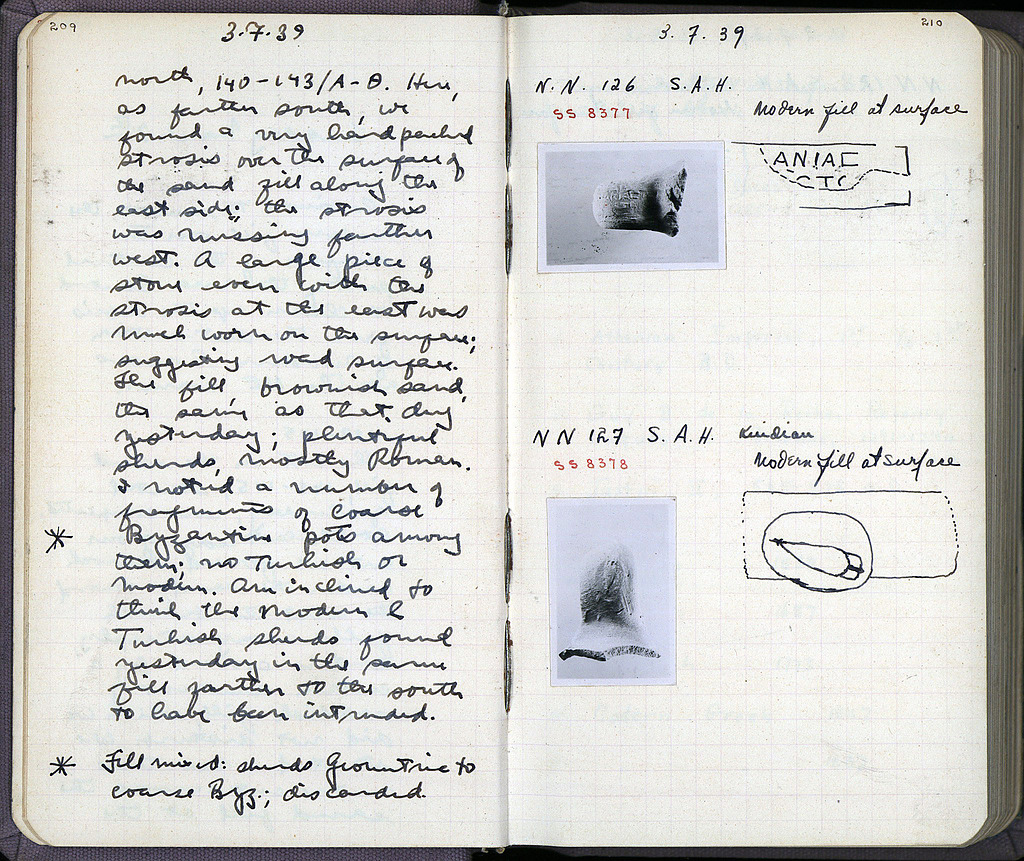 209
3.7.39
north, 140-143/Α-Θ. Here,
as farther south, we
found a very hard packed
strosis over the surface of
the sand fill along the
east side; the strosis
was missing farther
west. A large piece of
stone even with the
strosis at the east was
much worn on the surface;
suggesting road surface.
The fill, brownish sand,
the same as that dug
yesterday; plentiful
sherds, mostly Roman.
I noted a number of
fragments of coarse
* Byzantine pots among
them; no Turkish or
modern. Am inclined to
think the Modern &
Turkish sherds found
yesterday in the same
fill farther to the south
to have been intruded.
* Fill mixed: sherds Geometric to
coarse Byz.; discarded.
210
3. 7. 39
N.N. 126 S.A.H.
SS 8377 Modern fill at surface
ANIAC
CTO
NN 127 S.A.H. Knidian
SS 8378 Modern fill at surface